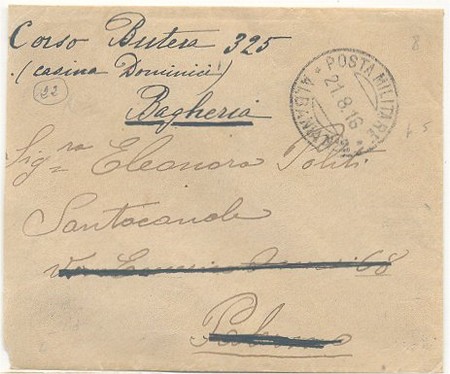 Corso Butera 325
(casina Dominici)
22
Bagheria
POSTA MILITARE
21.8.16
Sig.ra Eleonora Politi
Santocanale
68
Palermo
8